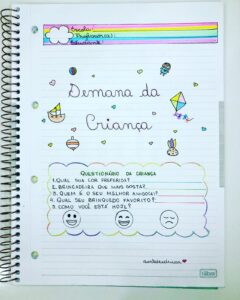 Escola:
Professora(a):
Estudante:
Semana da
Criança
QUESTIONÁRIO DA CRIANÇA
1. QUAL SUA COR PREFERIDA?
2. BRINCADEIRA QUE MAIS GOSTA?
3. QUEM É O SEU MELHOR AMIGO(A)?
4. QUAL SEU BRINQUEDO FAVORITO?
5. COMO VOCÊ ESTÁ HOJE?
tilibra